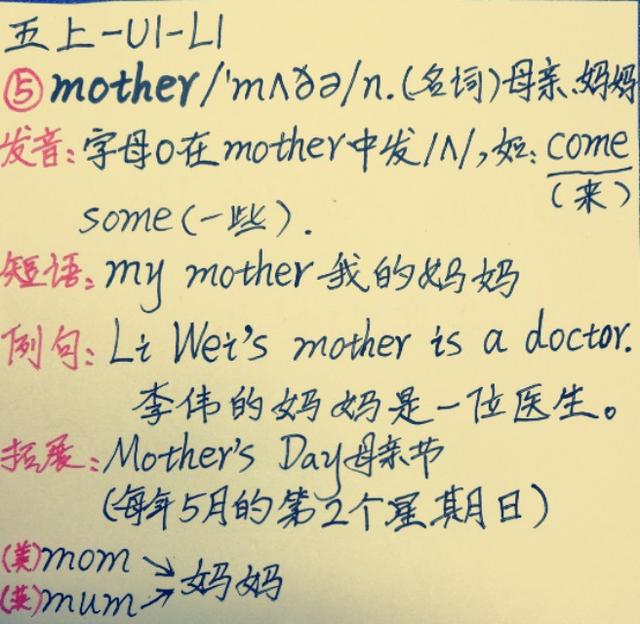 五上-U1-L1
⑤mother/'mʌðə/n.(名词)母亲、妈妈
发音:字母o在mother中发/ʌ/,如:come
(来)
some(一些).
短语:my mother 我的妈妈
例句:Li Wei's mother is a doctor.
李伟的妈妈是一位医生。
拓展:Mother's Day母亲节
(每年5月的第2个星期日)
(美)mom ↘妈妈
(英)mum↗